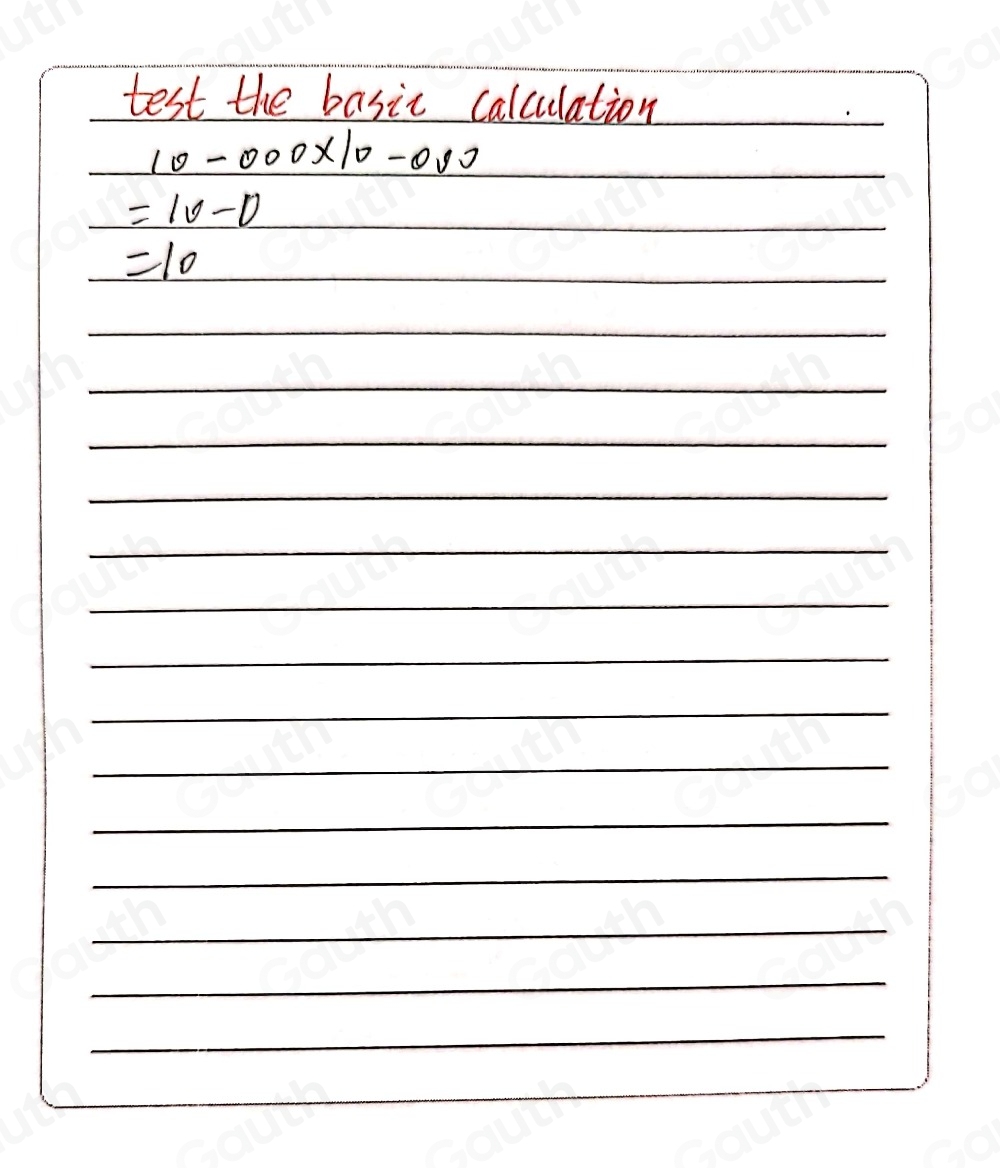 test the basic calculation
10-000×10-000
=10-0
=10